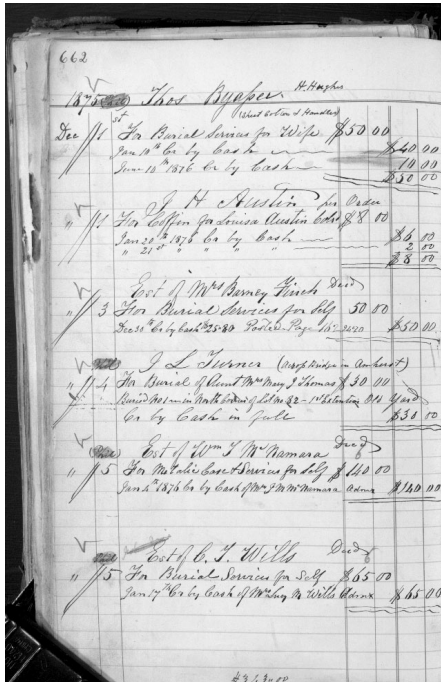 662
1875 Thos Bypper H. Hughes
Dec 1st For Burial Services for Wife $50 00
Jan 10th Cr by Cash $40 00
June 10th 1876 Cr by Cash 10 00
$50 00
J H Austin per Order
" 1 For Coffin for Louisa Austin Cold $8 00
Jan 20th 1876 Cr by Cash $6 00
" 21st " " " " 2 00
$8 00
Est of Mrs Barney Finch Decd
" 3 For Burial Services for Self 50 00
Dec 30th Cr by Cash Posted Page $50 00
J L Turner (across Bridge in Amherst)
" 4 For Burial of Aunt Mrs Mary J Thomas $30 00
Buried in North of Lot No 82 - 1st Extention Old Yard
Cr by Cash in full $30 00
Paid Est of Wm T McNamara Decd
" 5 For Metalic Case & Services for Self $140 00
Jan 4th 1876 Cr by Cash of Mrs McNamara Admx $140 00
Paid Est of C. T. Wills Decd
" 5 For Burial Services for Self $65 00
Jan 17th Cr by Cash of Mrs Lucy M Wills Admx $65 00